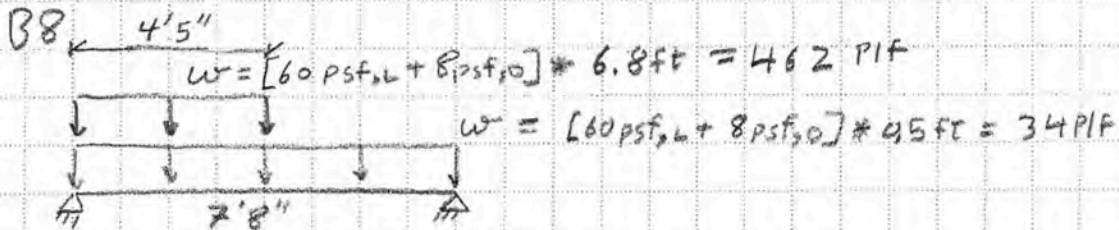 B8
4'5"
w = [60 psf,L + 8psf,D] * 6.8ft = 462 Plf
w = [60psf,L + 8psf,D] * 0.5 ft = 34 Plf
7'8"